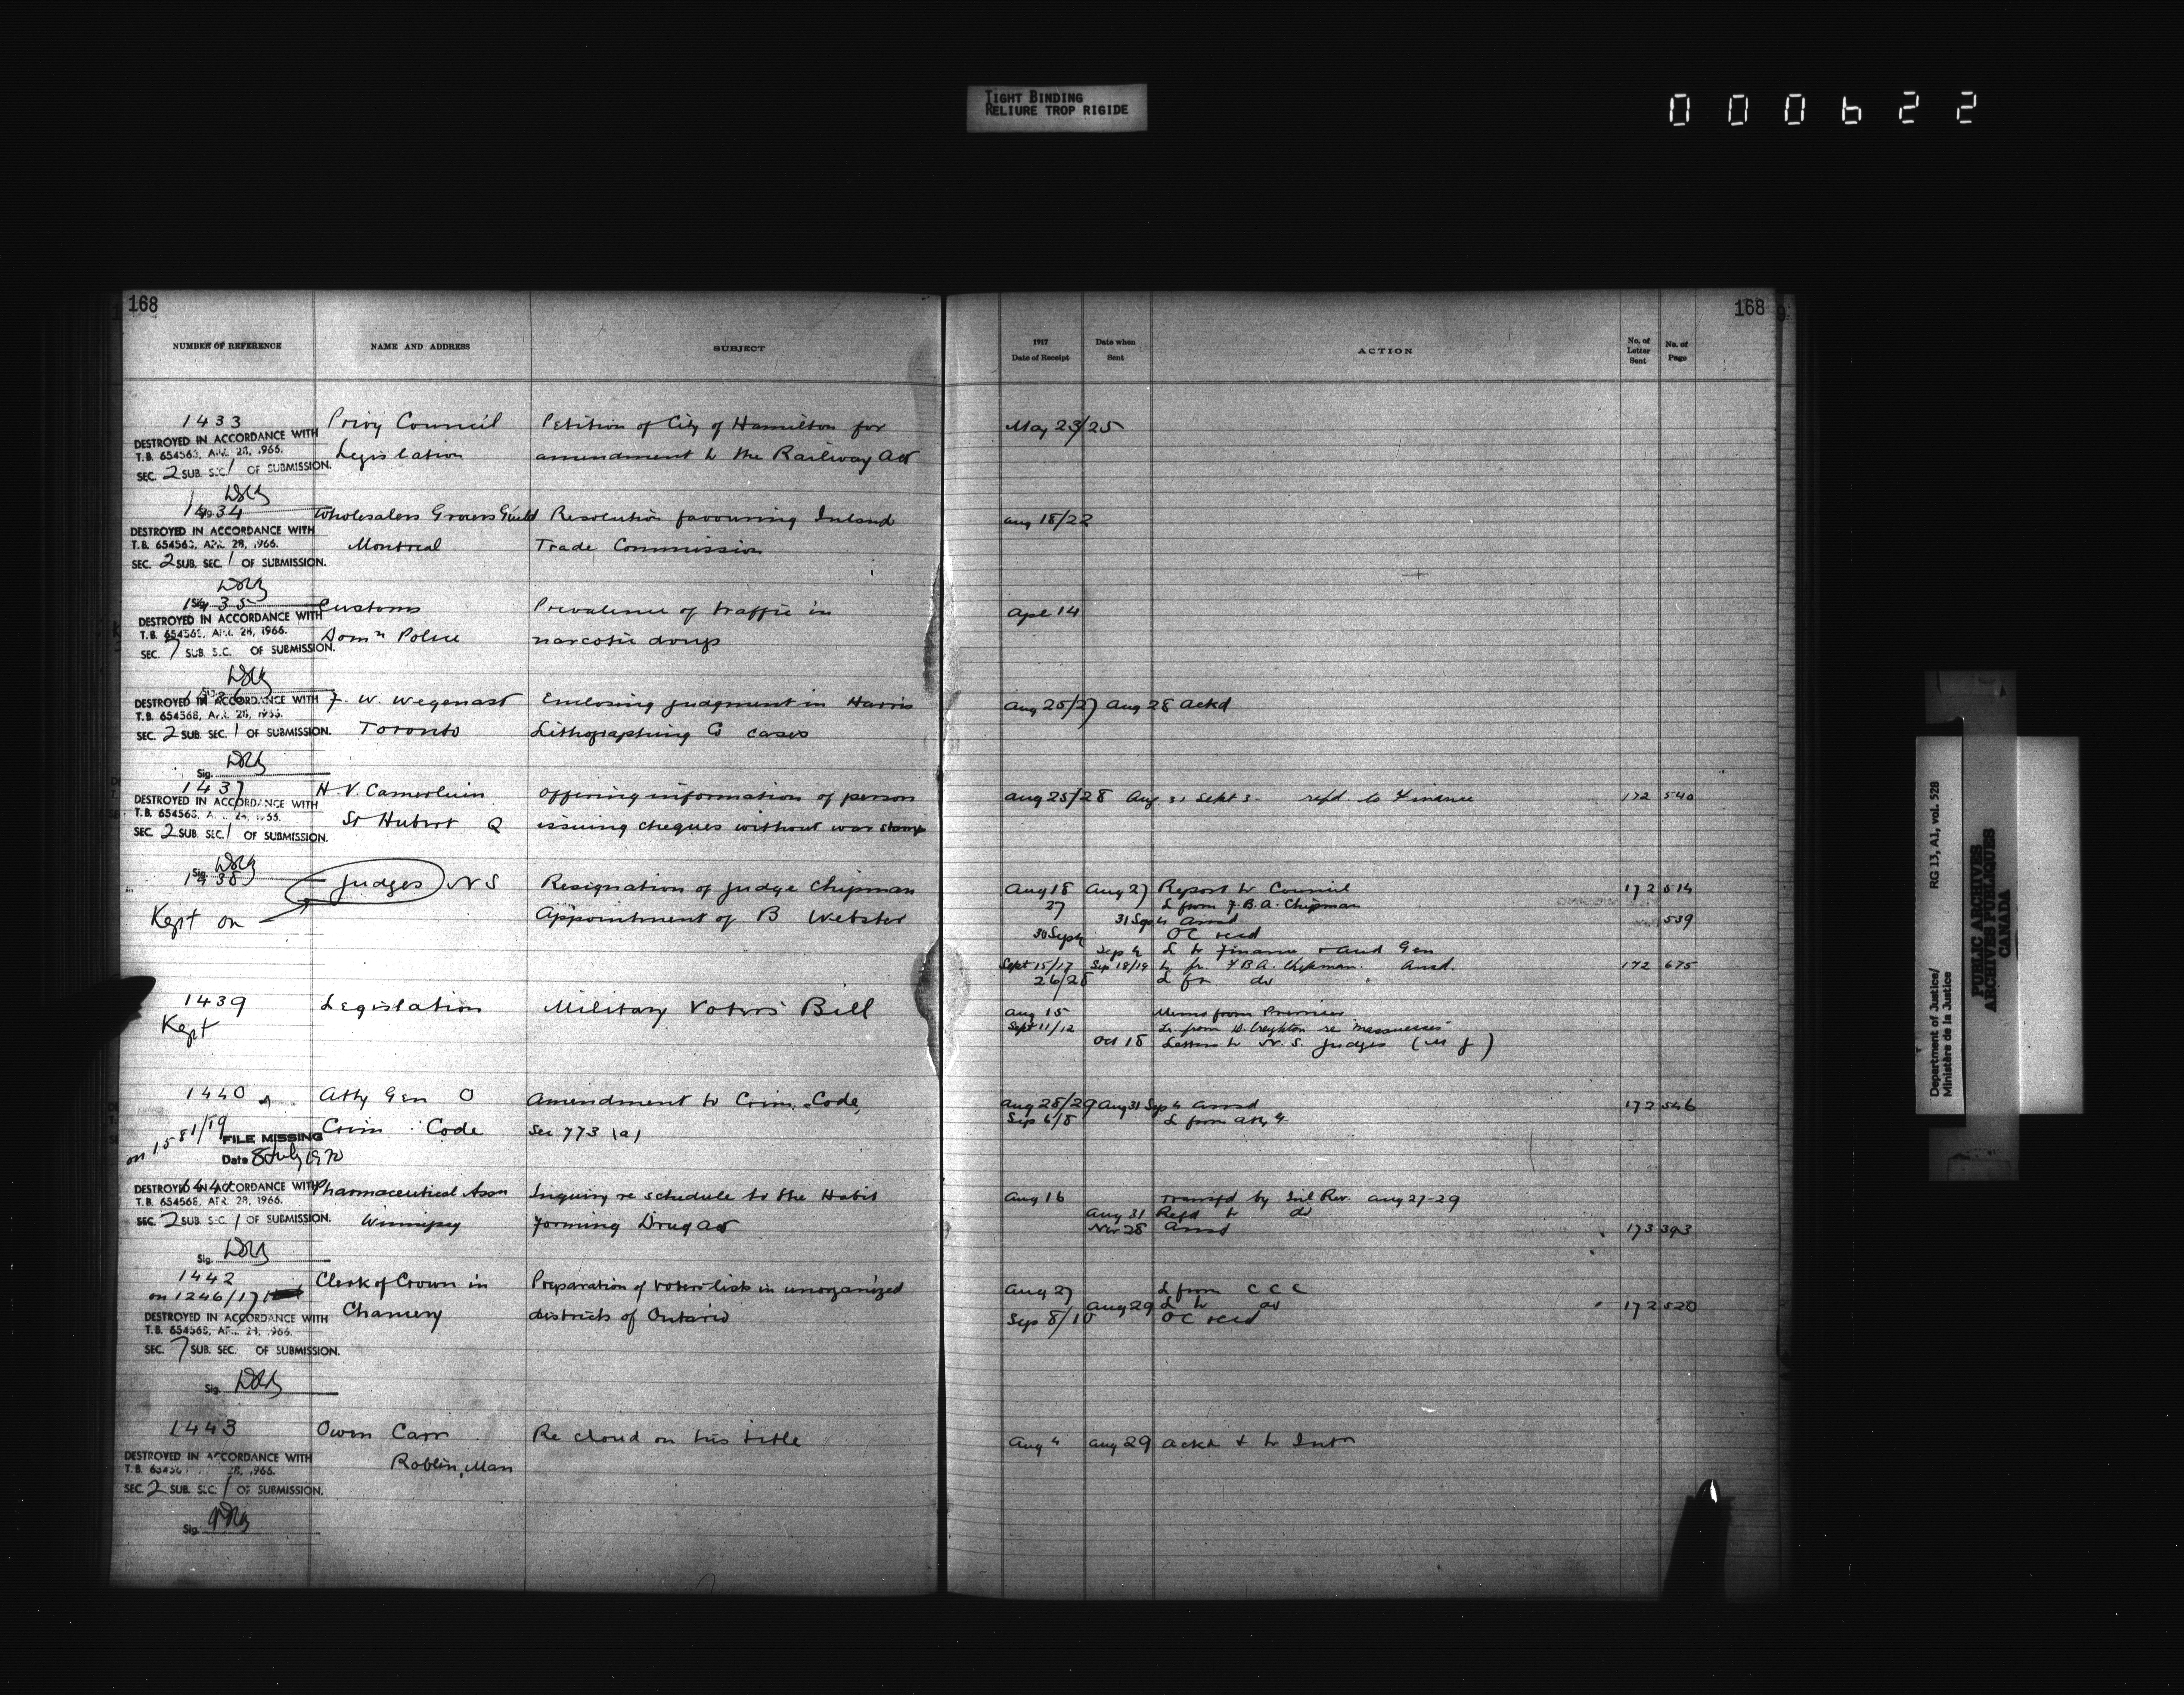 TIGHT BINDING
RELIURE TROP RIGIDE
000622
168
168
NUMBER OF REFERENCE NAME AND ADDRESS SUBJECT
1917 Date of Receipt Date when Sent ACTION No. of Letter Sent No. of Page
1433 Privy Council Petition of City of Hamilton for May 23/25
DESTROYED IN ACCORDANCE WITH
T.B. 654568, APR. 28, 1966.
Legislation amendment to the Railway Act
SEC. 2 SUB. SEC. 1 OF SUBMISSION.
1434 Wholesalers Grocers Guild Resolution favouring Inland Aug 18/22
DESTROYED IN ACCORDANCE WITH
T.B. 654568, APR. 28, 1966.
Montreal Trade Commission
SEC. 2 SUB. SEC. 1 OF SUBMISSION.
1435 Customs Prevalence of traffic in Apl 14
DESTROYED IN ACCORDANCE WITH
T.B. 654568, APR. 28, 1966.
Domn Police narcotic drugs
SEC. 7 SUB. SEC. OF SUBMISSION.
1436 F. W. Wegenast Enclosing judgment in Harris Aug 25/27 Aug 28 Ackd
DESTROYED IN ACCORDANCE WITH
T.B. 654568, APR. 28, 1966.
Toronto Lithographing Co cases
SEC. 2 SUB. SEC. 1 OF SUBMISSION.
Sig.
1437 H. V. Offering information of person Aug 25/28 Aug 31 Sept 3 refd. to Finance 172 540
DESTROYED IN ACCORDANCE WITH
T.B. 654568, APR. 28, 1966.
St Hubert Q issuing cheques without war stamp
SEC. 2 SUB. SEC. 1 OF SUBMISSION.
Sig.
1438 Judges N S Resignation of Judge Chipman Aug 18 Aug 27 Report to Council 172 514
27 L from F. B. A. Chipman
Kept on Appointment of B Webster 31 Sep 4 Ansd 539
30 Sep 4 OC recd
Sep 4 L to Finance & Aud Gen
Sept 15/17 Sep 18/19 L fr. F B A. Chipman. Ansd. 172 675
26/28 L fr. do
1439 Legislation Military Voters' Bill Aug 15 Memo from Premier
Kept Sept 11/12 Lr. from D. Creighton re
Oct 18 Letters to N. S. Judges (M J)
1440 Atty Gen O Amendment to Crim. Code, Aug 28/29 Aug 31 Sep 4 Ansd 172 546
Sep 6/8 L from Atty G
on 1581/19 Crim Code Sec 773 (a)
FILE MISSING
Date 8 July 1970
1441 Pharmaceutical Assn Inquiry re schedule to the Habit Aug 16 Transfd by Inl. Rev. Aug 27-29
DESTROYED IN ACCORDANCE WITH
T.B. 654568, APR. 28, 1966.
Winnipeg Forming Drug Act Aug 31 Refd to do
Nov 28 Ansd 173 393
SEC. 2 SUB. SEC. 1 OF SUBMISSION.
Sig.
1442 Clerk of Crown in Preparation of voters' lists in unorganized Aug 27 L from C C C
on 1246/17
Chancery districts of Ontario Aug 29 L to do 172 520
Sep 8/10 OC recd
DESTROYED IN ACCORDANCE WITH
T.B. 654568, APR. 28, 1966.
SEC. 7 SUB. SEC. OF SUBMISSION.
Sig.
1443 Owen Carr Re cloud on his title Aug 4 Aug 29 Ackd & to Intr
DESTROYED IN ACCORDANCE WITH
T.B. 654568, APR. 28, 1966.
Roblin, Man
SEC. 2 SUB. SEC. 1 OF SUBMISSION.
Sig.
Department of Justice/
Ministère de la Justice
RG 13, A1, vol. 528
PUBLIC ARCHIVES
ARCHIVES PUBLIQUES
CANADA